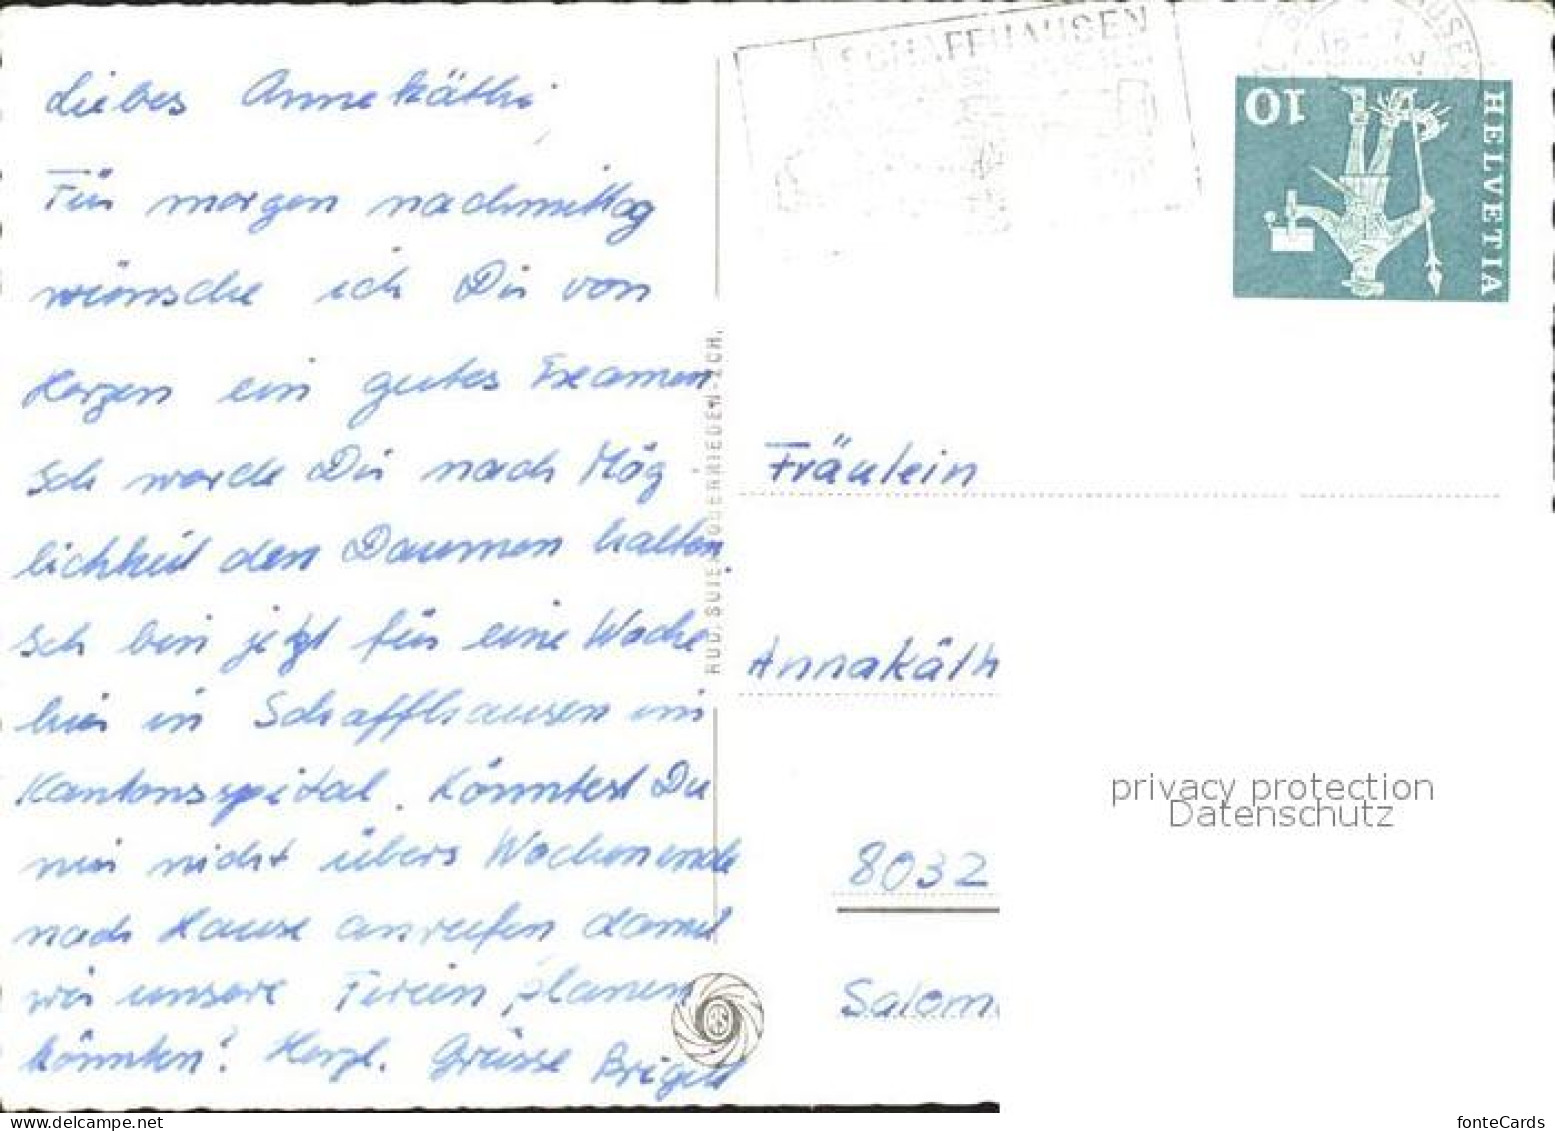 Liebes Annekäthi,
Für morgen nachmittag
wünsche ich Dir von
Herzen ein gutes Examen
Ich werde Dir nach Mög
lichkeit den Daumen halten.
Ich bin jetzt für eine Woche
hier in Schaffhausen im
Kantonsspital. Könntest Du
mir nicht übers Wochenende
nach Hause anrufen damit
wir unsere Ferien planen
könnten? Herzl. Grüsse Brigitt
RUD. SUTER OBERRIEDEN-ZCH.
SCHAFFHAUSEN
10
HELVETIA
Fräulein
Annakäth
8032
Salom
privacy protection
Datenschutz
www.delcampe.net
fonteCards